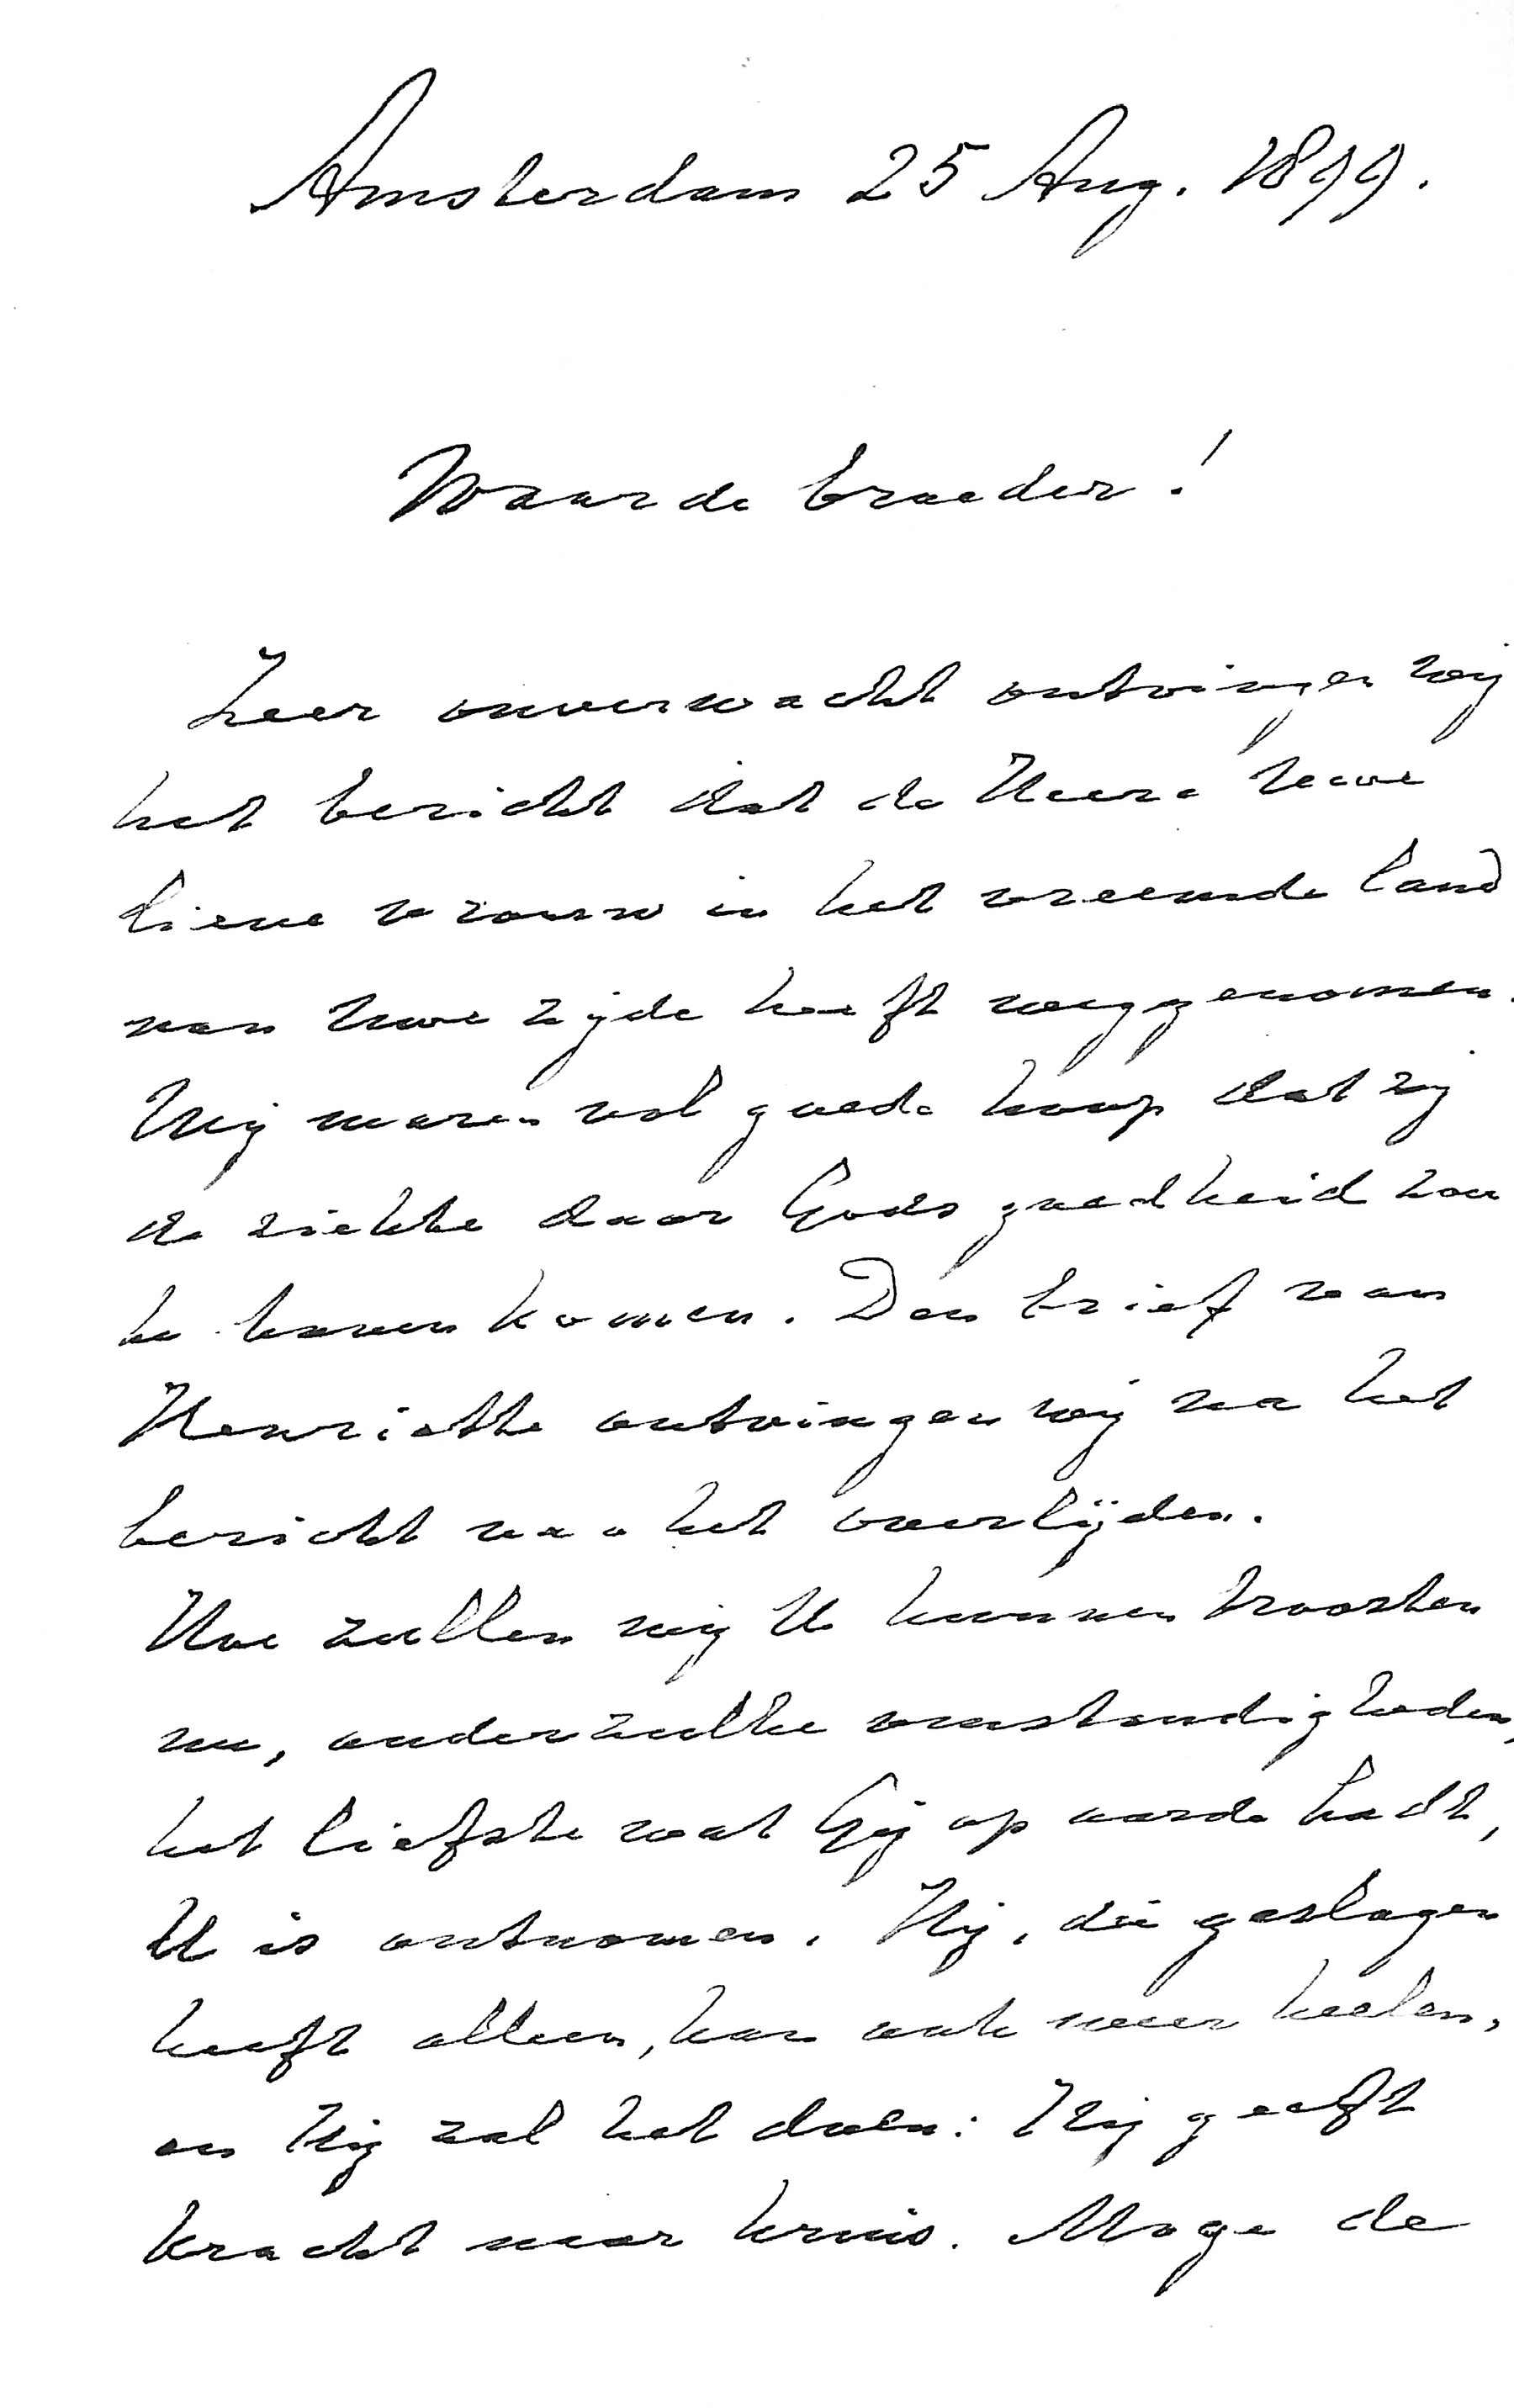 Amsterdam 25 Aug. 1899.
Waarde broeder!
Zeer onverwacht ontvingen wij
het bericht dat de Heere Uwe
lieve vrouw in het vreemde land
van Uwe zijde heeft weggenomen.
Wij waren vol goede hoop dat zij
de ziekte door Gods goedheid zou
te boven komen. Den brief van
Henriette ontvingen wij na het
bericht van het overlijden.
Hoe zullen wij U kunnen troosten
nu, onder zulke omstandigheden,
het liefste wat Gij op aarde hadt,
U is ontnomen. Hij, die geslagen
heeft alleen, kan ook weer heelen,
en Hij zal het doen: Hij geeft
kracht naar kruis. Moge de